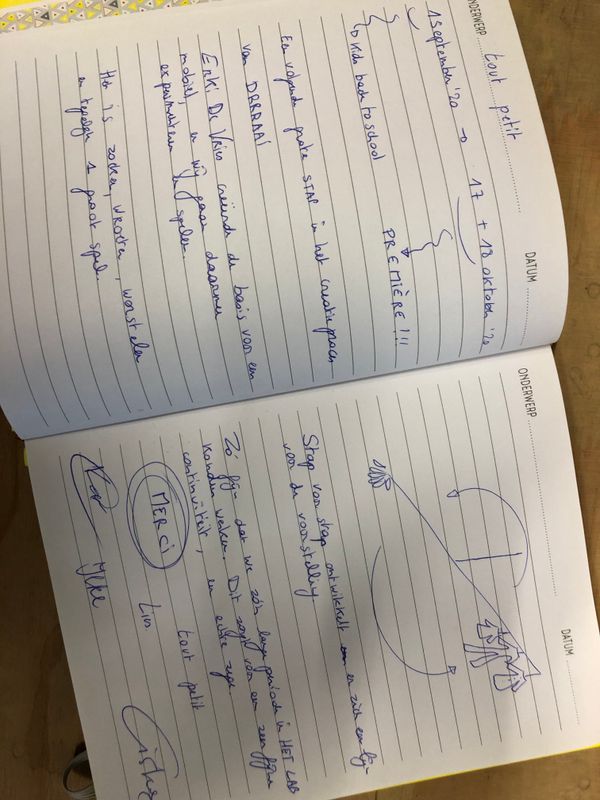 ONDERWERP tout petit DATUM
1 september '20 → 17 + 18 oktober '20
↳ rich back to school PREMIÈRE!!!
Een volgende grote STAP in het creatieproces
van DARAAAI
Enki De Vries creëerde de basis van een
mobiel, en wij gaan daarmee
experimenteren en spelen.
Het is zoeken, wroeten, worstelen
en tegelijk 1 groot spel.
ONDERWERP DATUM
Stap voor stap ontwikkelt er zich een lijn
voor de voorstelling
Zo fijn dat we zo'n lange periode in HET LAB
konden werken. Dit zorgt voor een zeer fijne
continuïteit, en echte
MERCI tout petit
Lies